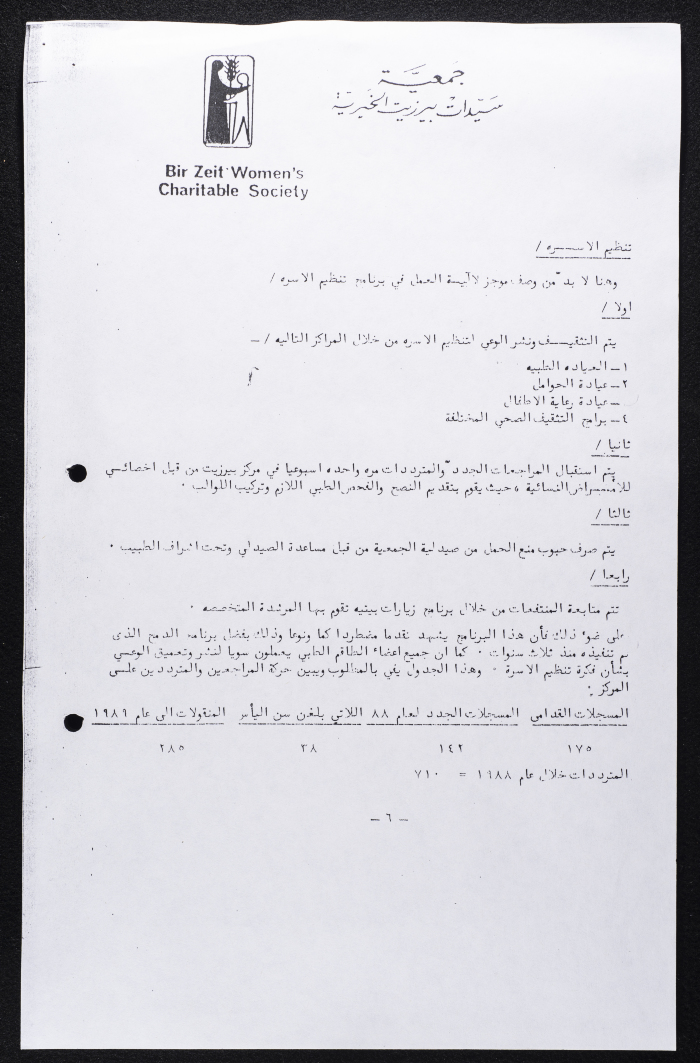 جمعية
سيدات بيرزيت الخيرية
Bir Zeit Women's
Charitable Society
تنظيم الاســـره /
وهنا لا بد من وصف موجز لآليسة العمل في برنامج تنظيم الاسره /
اولا /
يتم التثقيــف ونشر الوعي لتنظيم الاسره من خلال المراكز التاليه / ــ
١ــ العياده الطبيه
٢ــ عيادة الحوامل
ــ عيادة رعاية الاطفال
٤ــ برامج التثقيف الصحي المختلفة
ثانيا /
يتم استقبال المراجعات الجدد والمترددات مره واحده اسبوعيا في مركز بيرزيت من قبل اخصائسي
للأمــراض النسائية ، حيث يقوم بتقديم النصح والفحص الطبي اللازم وتركيب اللوالب ٠
ثالثا /
يتم صرف حبوب منع الحمل من صيدلية الجمعية من قبل مساعدة الصيدلي وتحت اشراف الطبيب ٠
رابعا /
تتم متابعة المنتفعات من خلال برنامج زيارات بيتيه تقوم بها المرشدة المتخصصه ٠
على ضوء ذلك فأن هذا البرنامج يشهد تقدما مضطردا كما ونوعا وذلك بفضل برنامج الدمج الذي
تم تنفيذه منذ ثلاث سنوات ٠ كما ان جميع اعضاء الطاقم الطبي يعملون سويا لنشر وتعميق الوعسي
بشأن فكرة تنظيم الاسرة ٠ وهذا الجدول يفي بالمطلوب ويبين حركة المراجعين والمترددين علسى
المركز :
المسجلات القدامى المسجلات الجدد لعام ٨٨ اللاتي بلغن سن اليأس المنقولات الى عام ١٩٨٩
١٧٥ ١٤٢ ٣٨ ٢٨٥
المترددات خلال عام ١٩٨٨ = ٧١٠
ــ ٦ ــ